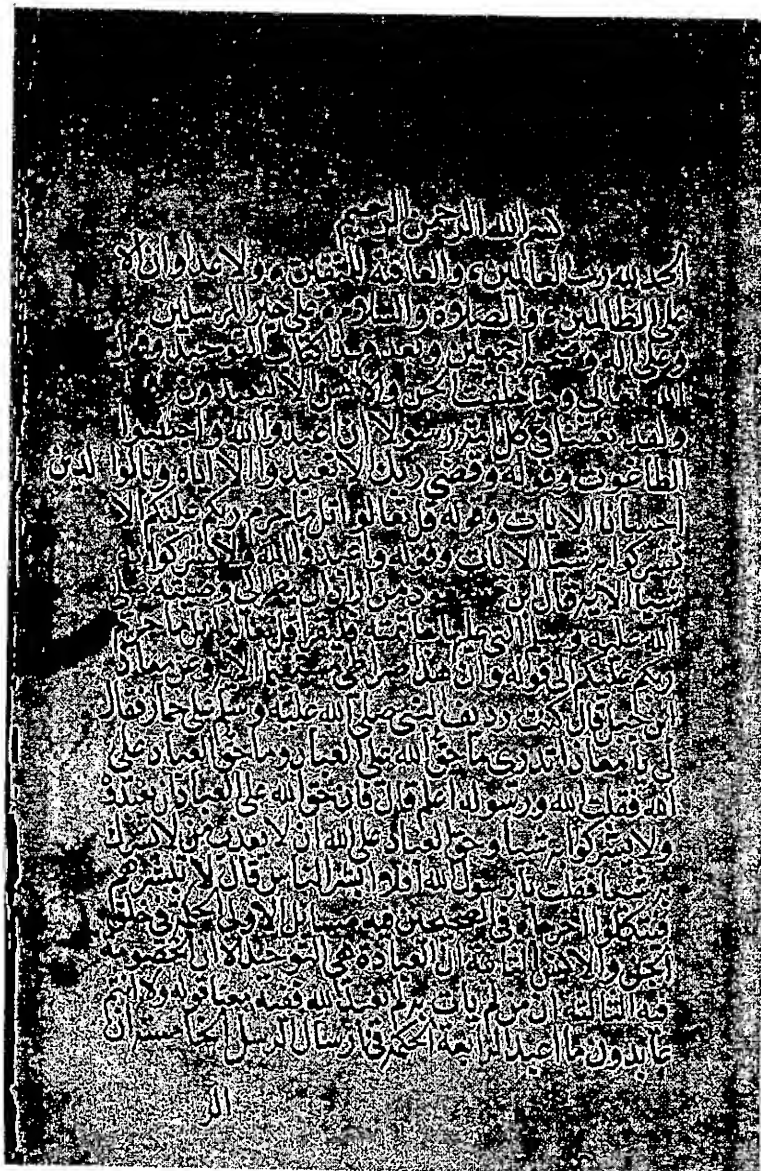 بسم الله الرحمن الرحيم
الحمد لله رب العالمين، والعاقبة للمتقين، ولا عدوان الا
على الظالمين، والصلاة والسلام على خير المرسلين
وعلى اله وصحبه اجمعين وبعد فهذا كتاب التوحيد وقول
الله تعالى وما خلقت الجن والانس الا ليعبدون
ولقد بعثنا في كل امة رسولا ان اعبدوا الله واجتنبوا
الطاغوت وقوله وقضى ربك الا تعبدوا الا اياه وبالوالدين
احسانا الايات وقوله قل تعالوا اتل ما حرم ربكم عليكم الا
تشركوا به شيا الايات وقوله واعبدوا الله ولا تشركوا به
شيا الاية قال ابن من اراد ان ينظر الى وصية
الله عليه وسلم التي عليها خاتمه فليقرا قل تعالوا اتل ما حرم
ربكم عليكم الى قوله وان هذا صراطي مستقيما الاية وعن معاذ
ابن جبل قال كنت رديف النبي صلى الله عليه وسلم على حمار فقال
لي يا معاذ اتدري ما حق الله على العباد وما حق العباد على
الله فقلت الله ورسوله اعلم قال فان حق الله على العباد ان يعبدوه
ولا يشركوا به شيا وحق العباد على الله ان لا يعذب من لا يشرك
به شيا فقلت يا رسول الله افلا ابشر الناس قال لا تبشرهم
فيتكلوا اخرجاه في الصحيحين فيه مسايل الاولى الحكمة في خلق
الجن والانس الثانية ان العبادة هي التوحيد لان الخصومة
فيه الثالثة ان من لم يات به لم يعبد الله ففيه معنا قوله ولا انتم
عابدون ما اعبد الرابعة الحكمة في ارسال الرسل الخامسة ان
الر